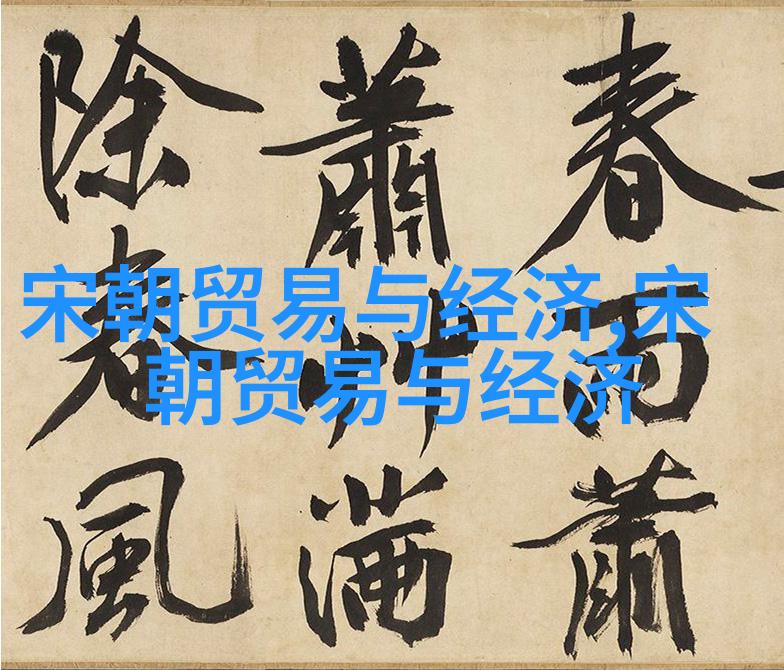 春雨蕭
蕭艸滿
除春風
宋朝贸易与经济,宋
朝贸易与经济